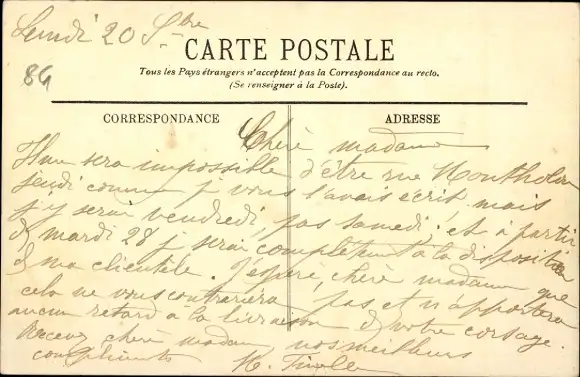 Lundi 20 Sbre
86
CARTE POSTALE
Tous les Pays étrangers n'acceptent pas la Correspondance au recto.
(Se renseigner à la Poste).
CORRESPONDANCE
ADRESSE
Chère madame
Il me sera impossible d'être rue Montholon
jeudi comme je vous l'avais écrit mais
j'y serai vendredi, pas samedi, et à partir
de mardi 28 je serai complètement à la disposition
de ma clientèle. J'espère, chère madame que
cela ne vous contrariera pas et n'apportera
aucun retard à la livraison de votre corsage.
Recevez chère madame nos meilleurs
compliments